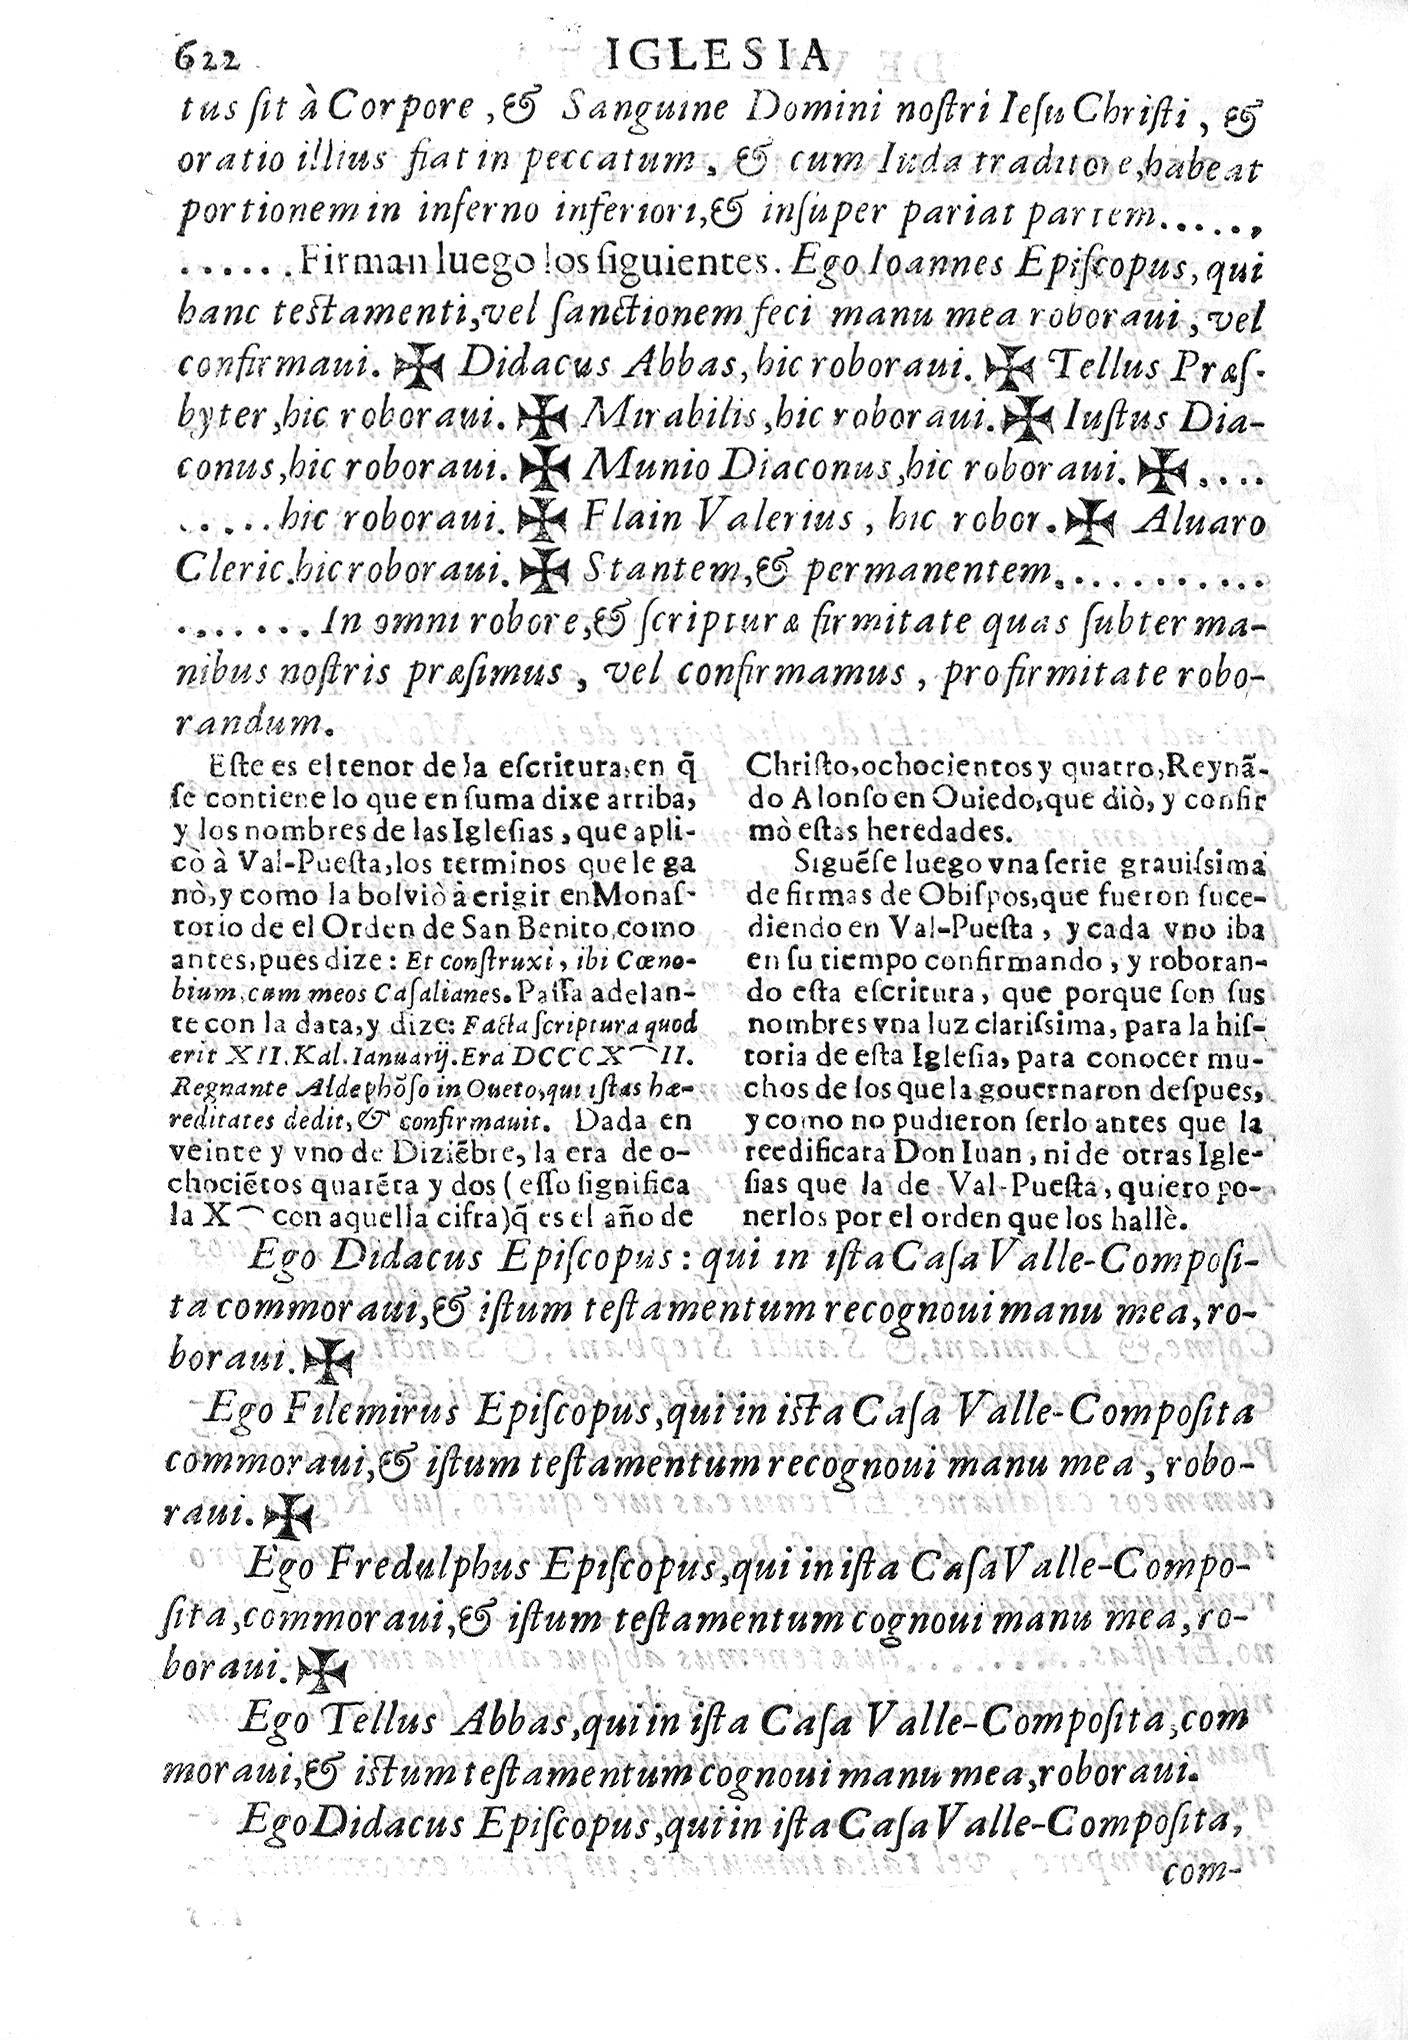 622 IGLESIA
tus ſit à Corpore, & Sanguine Domini noſtri Ieſu Chriſti, &
oratio illius fiat in peccatum, & cum Iuda traditore, habeat
portionem in inferno inferiori, & inſuper pariat partem......,
......Firman luego los ſiguientes. Ego Ioannes Epiſcopus, qui
hanc teſtamenti, vel ſanctionem feci manu mea roboraui, vel
confirmaui. ✠ Didacus Abbas, hic roboraui. ✠ Tellus Præſ-
byter, hic roboraui. ✠ Mirabilis, hic roboraui. ✠ Iuſtus Dia-
conus, hic roboraui. ✠ Munio Diaconus, hic roboraui. ✠....
.....hic roboraui. ✠ Flain Valerius, hic robor. ✠ Aluaro
Cleric. hic roboraui. ✠ Stantem, & permanentem...........
.......In omni robore, & ſcripturæ firmitate quas ſubter ma-
nibus noſtris præſimus, vel confirmamus, pro firmitate robo-
randum.
Eſte es el tenor de la eſcritura, en q̃
ſe contiene lo que en ſuma dixe arriba,
y los nombres de las Igleſias, que apli-
cò à Val-Pueſta, los terminos que le ga
nò, y como la bolviò à erigir en Monaſ-
torio de el Orden de San Benito, como
antes, pues dize: Et conſtruxi, ibi Cœno-
bium, cum meos Caſalianes. Paſſa adelan-
te con la data, y dize: Facta ſcriptura quod
erit XII. Kal. Ianuarij. Era DCCCX⁀II.
Regnante Aldephõſo in Oueto, qui iſtas hæ-
reditates dedit, & confirmauit. Dada en
veinte y vno de Diziẽbre, la era de o-
chociẽtos quarẽta y dos (eſſo ſignifica
la X⁀ con aquella cifra) q̃ es el año de
Chriſto, ochocientos y quatro, Reynã-
do Alonſo en Ouiedo, que diò, y confir
mò eſtas heredades.
Siguẽſe luego vna ſerie grauiſsima
de firmas de Obiſpos, que fueron ſuce-
diendo en Val-Pueſta, y cada vno iba
en ſu tiempo confirmando, y roboran-
do eſta eſcritura, que porque ſon ſus
nombres vna luz clariſsima, para la hiſ-
toria de eſta Igleſia, para conocer mu-
chos de los que la gouernaron deſpues,
y como no pudieron ſerlo antes que la
reedificara Don Iuan, ni de otras Igle-
ſias que la de Val-Pueſta, quiero po-
nerlos por el orden que los hallè.
Ego Didacus Epiſcopus: qui in iſta Caſa Valle-Compoſi-
ta commoraui, & iſtum teſtamentum recognoui manu mea, ro-
boraui. ✠
Ego Filemirus Epiſcopus, qui in iſta Caſa Valle-Compoſita
commoraui, & iſtum teſtamentum recognoui manu mea, robo-
raui. ✠
Ego Fredulphus Epiſcopus, qui in iſta Caſa Valle-Compo-
ſita, commoraui, & iſtum teſtamentum cognoui manu mea, ro-
boraui. ✠
Ego Tellus Abbas, qui in iſta Caſa Valle-Compoſita, com
moraui, & iſtum teſtamentum cognoui manu mea, roboraui.
Ego Didacus Epiſcopus, qui in iſta Caſa Valle-Compoſita,
com-